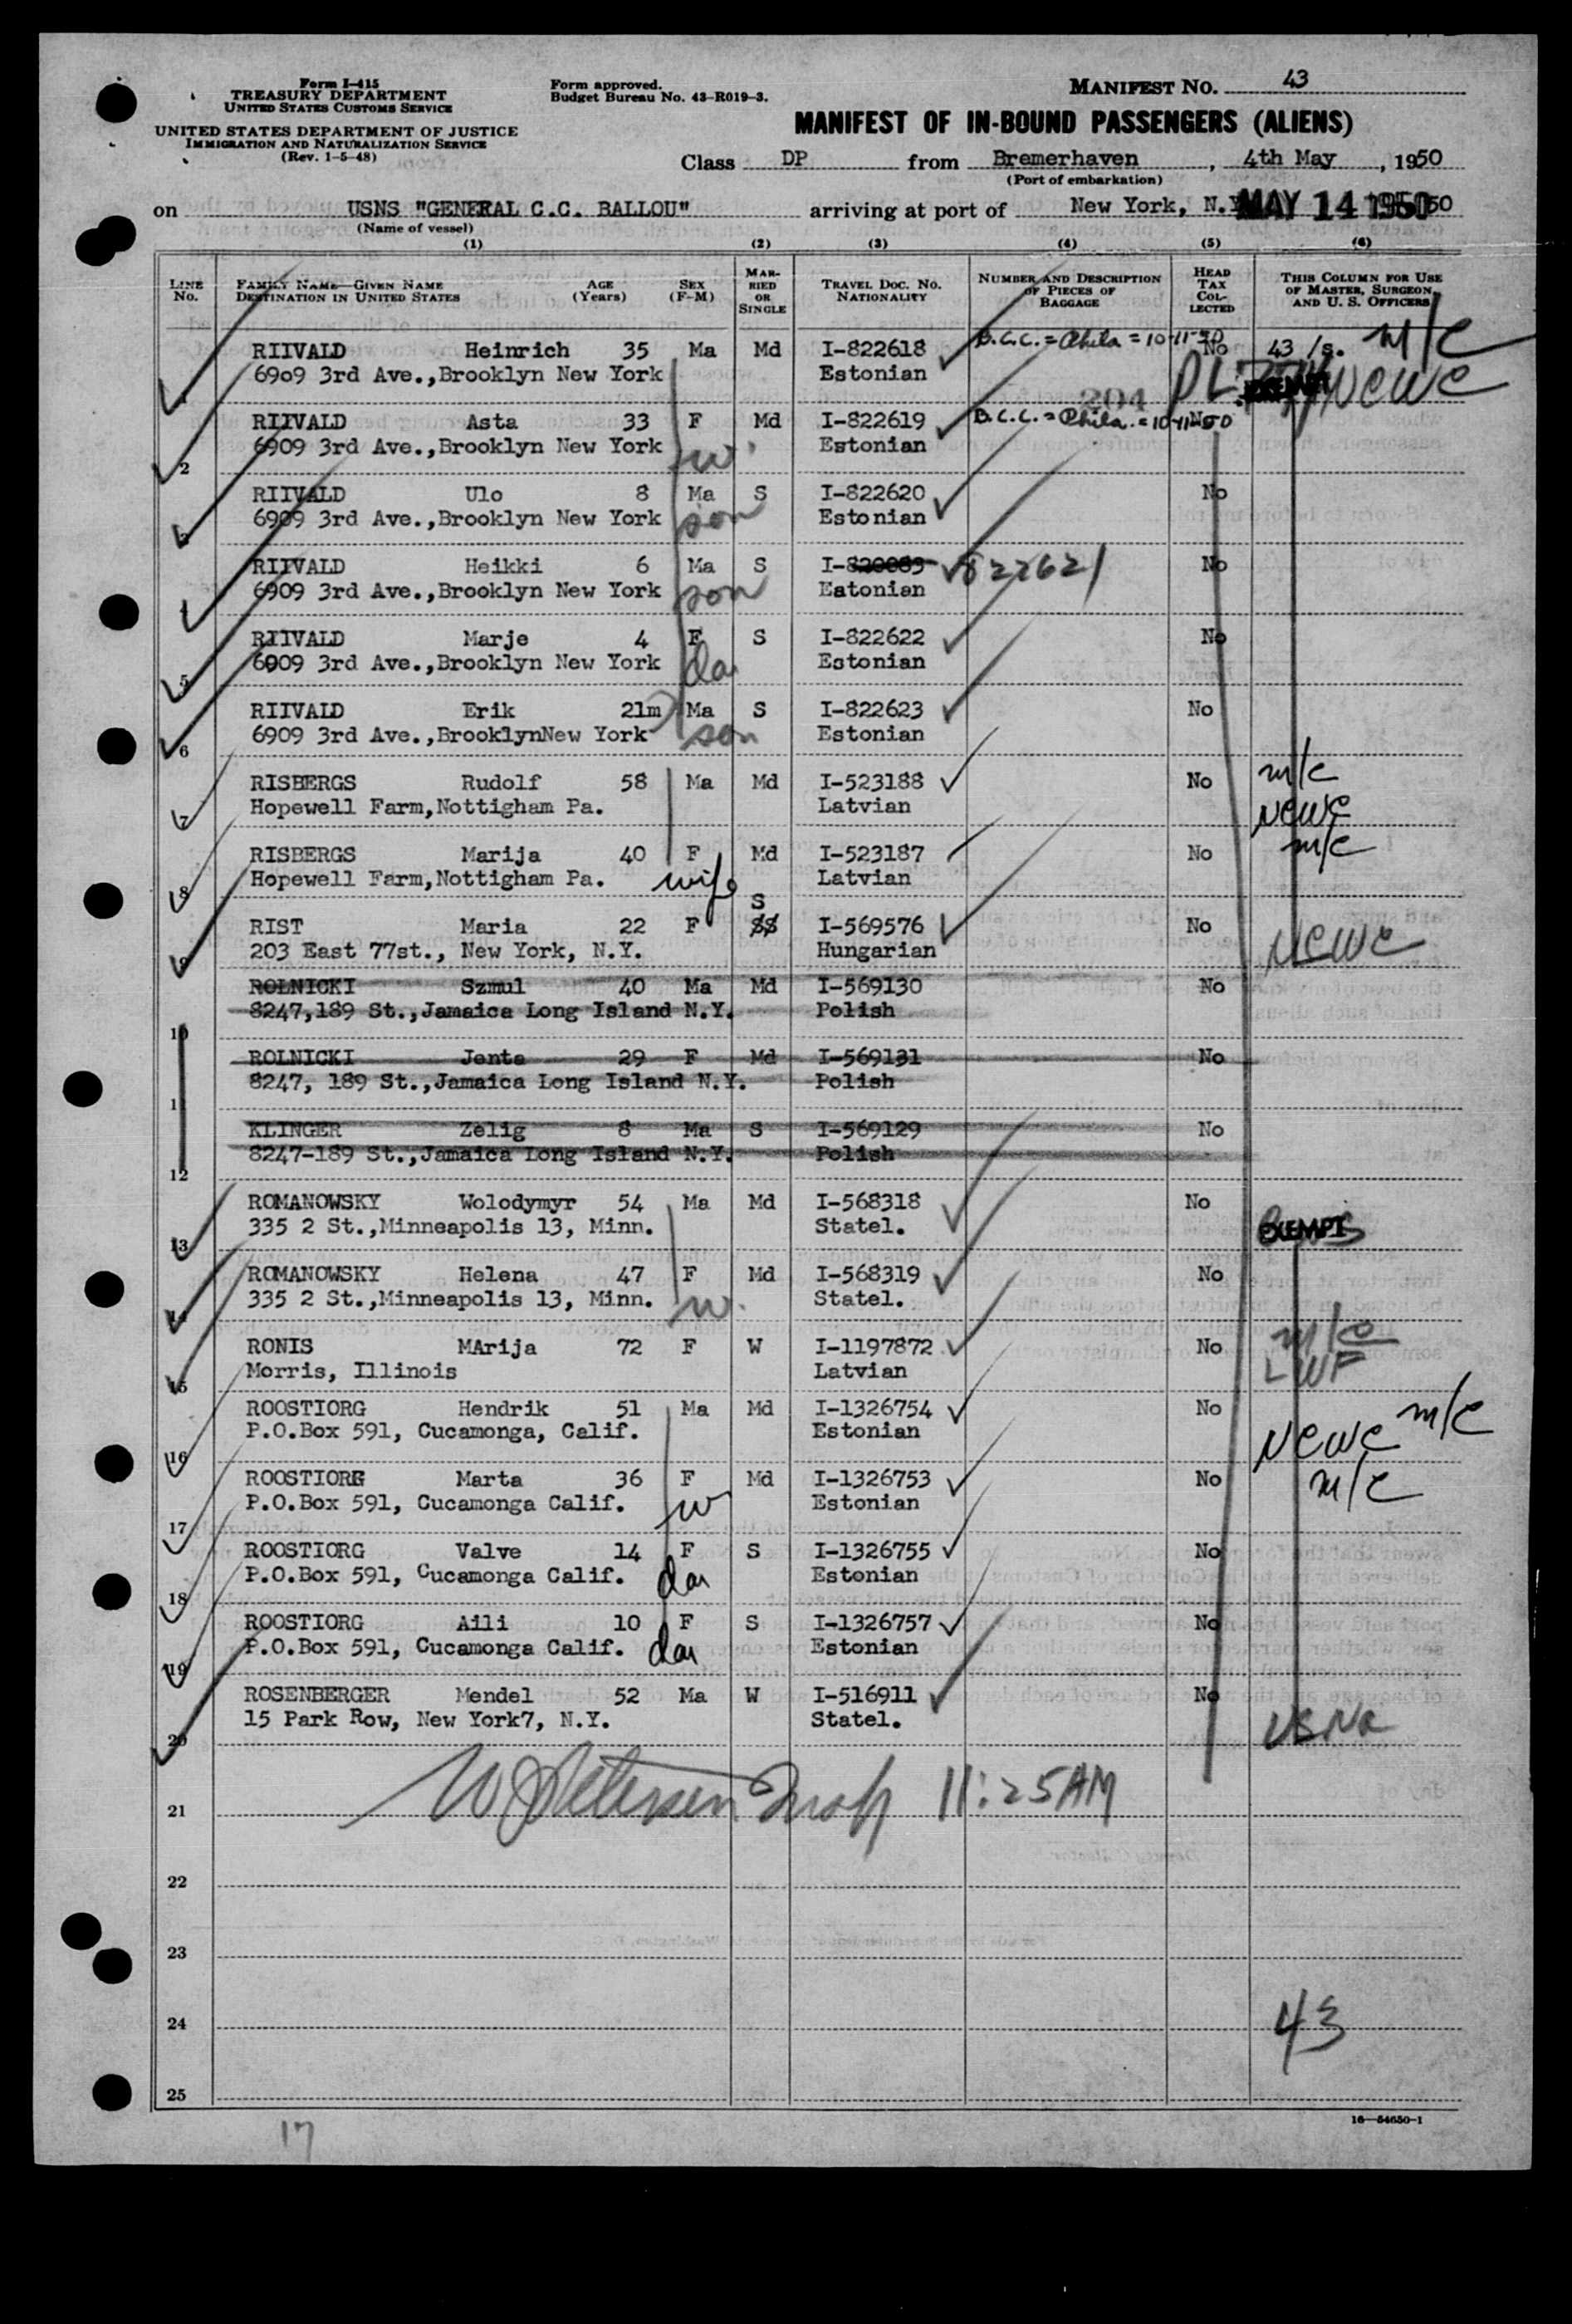 Form I-415
TREASURY DEPARTMENT
UNITED STATES CUSTOMS SERVICE
UNITED STATES DEPARTMENT OF JUSTICE
IMMIGRATION AND NATURALIZATION SERVICE
(Rev. 1-5-48)
Form approved.
Budget Bureau No. 43-R019-3.
MANIFEST NO. 43
MANIFEST OF IN-BOUND PASSENGERS (ALIENS)
Class DP from Bremerhaven, 4th May, 1950
(Port of embarkation)
on USNS "GENERAL C.C. BALLOU" arriving at port of New York, N.Y. MAY 14 1950 50
(Name of vessel)
(1) (2) (3) (4) (5) (6)
LINE No. FAMILY NAME—GIVEN NAME DESTINATION IN UNITED STATES AGE (Years) SEX (F-M) MARRIED OR SINGLE TRAVEL DOC. NO. NATIONALITY NUMBER AND DESCRIPTION OF PIECES OF BAGGAGE HEAD TAX COLLECTED THIS COLUMN FOR USE OF MASTER, SURGEON, AND U. S. OFFICERS
RIIVALD Heinrich 35 Ma Md I-822618 B.C.C. = Phila = 10-11-50 No 43 /s. m/c
6909 3rd Ave.,Brooklyn New York Estonian 204 EXEMPT NCWC
RIIVALD Asta 33 F Md I-822619 B.C.C. = Phila. = 10-11-50 No
2 6909 3rd Ave.,Brooklyn New York w. Estonian
RIIVALD Ulo 8 Ma S I-822620 No
3 6909 3rd Ave.,Brooklyn New York son Estonian
RIIVALD Heikki 6 Ma S I-820083 822621 No
4 6909 3rd Ave.,Brooklyn New York son Eatonian
RIIVALD Marje 4 F S I-822622 No
5 6909 3rd Ave.,Brooklyn New York da Estonian
RIIVALD Erik 21m Ma S I-822623 No
6 6909 3rd Ave.,BrooklynNew York son Estonian
RISBERGS Rudolf 58 Ma Md I-523188 No m/c
7 Hopewell Farm,Nottigham Pa. Latvian NCWC
RISBERGS Marija 40 F Md I-523187 No m/c
8 Hopewell Farm,Nottigham Pa. wife Latvian
RIST Maria 22 F S I-569576 No
9 203 East 77st., New York, N.Y. Hungarian NCWC
ROLNICKI Szmul 40 Ma Md I-569130 No
10 8247,189 St.,Jamaica Long Island N.Y. Polish
ROLNICKI Jenta 29 F Md I-569131 No
11 8247, 189 St.,Jamaica Long Island N.Y. Polish
KLINGER Zelig 8 Ma S I-569129 No
12 8247-189 St.,Jamaica Long Island N.Y. Polish
ROMANOWSKY Wolodymyr 54 Ma Md I-568318 No
13 335 2 St.,Minneapolis 13, Minn. Statel. EXEMPT
ROMANOWSKY Helena 47 F Md I-568319 No
14 335 2 St.,Minneapolis 13, Minn. w. Statel.
RONIS MArija 72 F W I-1197872 No m/c
15 Morris, Illinois Latvian LWF
ROOSTIORG Hendrik 51 Ma Md I-1326754 No m/c
16 P.O.Box 591, Cucamonga, Calif. Estonian NCWC
ROOSTIORG Marta 36 F Md I-1326753 No m/c
17 P.O.Box 591, Cucamonga Calif. w Estonian
ROOSTIORG Valve 14 F S I-1326755 No
18 P.O.Box 591, Cucamonga Calif. dau Estonian
ROOSTIORG Aili 10 F S I-1326757 No
19 P.O.Box 591, Cucamonga Calif. dau Estonian
ROSENBERGER Mendel 52 Ma W I-516911 No
20 15 Park Row, New York7, N.Y. Statel. USNA
21 11:25AM
22
23
24 43
25
16—54650-1
17